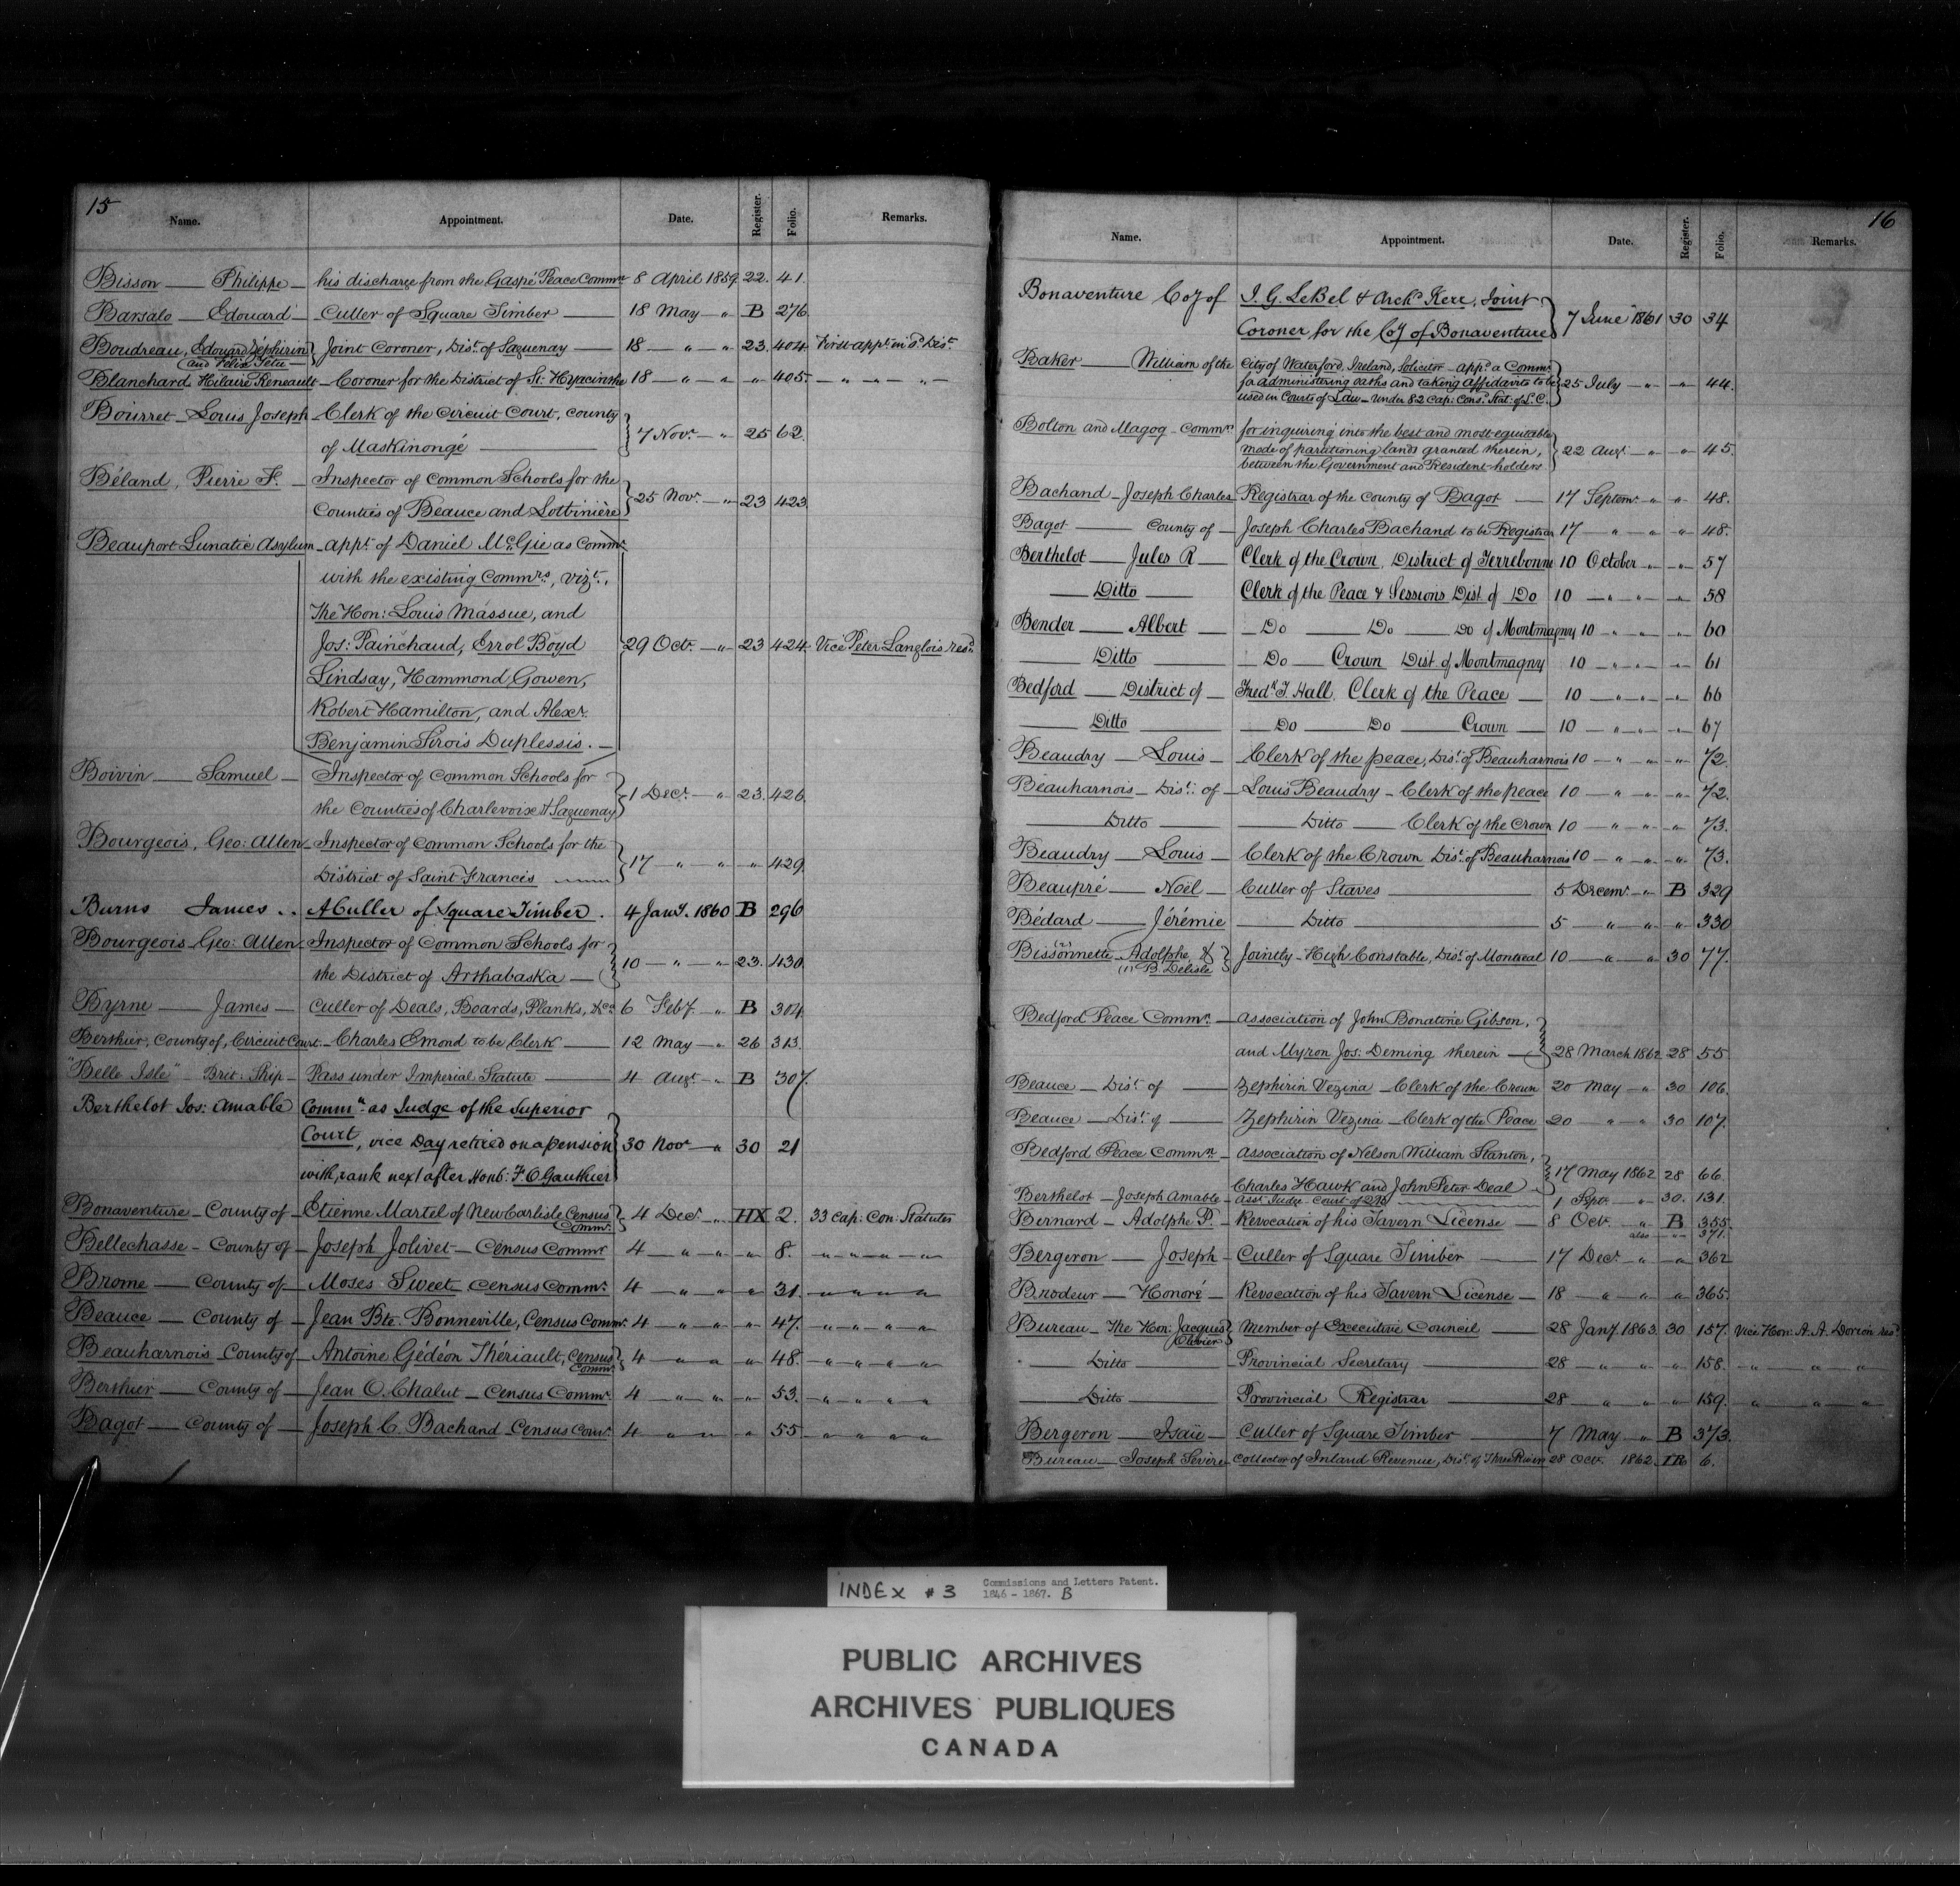 15
Name. Appointment. Date. Register. Folio. Remarks.
Bisson — Philippe — his discharge from the Gaspé Peace Commn 8 April 1859 22. 41.
Barsalo — Edouard — Culler of Square Timber — 18 May — " B 276
Boudreau, Edouard Zephirin } Joint Coroner, Dist. of Saguenay — 18 — " — " 23. 404 First appt. in sd. Dist.
and Felix Tetu —
Blanchard Hilaire Reneault — Coroner for the District of St. Hyacinthe 18 — " — " " 405. — " — " — " —
Bourret — Louis Joseph — Clerk of the Circuit Court, County
of Maskinongé — } 7 Novr. — " 25 62.
Béland, Pierre F. — Inspector of Common Schools for the
Counties of Beauce and Lotbinière } 25 Novr. — " 23 423
Beauport Lunatic Asylum — appt. of Daniel McGie as Commr.
with the existing Commrs, vizt.,
The Hon: Louis Massue, and
Jos: Painchaud, Errol Boyd } 29 Octr. — " 23 424 Vice Peter Langlois resd.
Lindsay, Hammond Gowen,
Robert Hamilton, and Alexr.
Benjamin Sirois Duplessis. —
Boivin — Samuel — Inspector of Common Schools for
the Counties of Charlevoix & Saguenay } 1 Decr. — " 23. 426.
Bourgeois, Geo: Allen — Inspector of Common Schools for the
District of Saint Francis } 17 — " — " " 429.
Burns James . . A Culler of Square Timber . 4 Jany. 1860 B 296
Bourgeois Geo: Allen — Inspector of Common Schools for
the District of Arthabaska — } 10 — " — " 23. 430.
Byrne — James — Culler of Deals, Boards, Planks, &ca 6 Feby. — " B 304
Berthier, County of, Circuit Court — Charles Emond to be Clerk — 12 May — " 26 313.
"Belle Isle" — Brit: Ship — Pass under Imperial Statute — 4 Augt. — " B 307.
Berthelot Jos: Amable Commn. as Judge of the Superior
Court, vice Day retired on a pension } 30 Novr — " 30 21
with rank next after Honb: F. O. Gauthier
Bonaventure — County of — Etienne Martel of New Carlisle Census
Commr. } 4 Decr. — " HX 2. 33 Cap: Con: Statutes
Bellechasse — County of — Joseph Jolivet — Census Commr 4 — " — " " 8. — " — " — " — "
Brome — County of — Moses Sweet Census Commr. 4 — " — " " 31. — " — " — " — "
Beauce — County of — Jean Bte. Bonneville, Census Commr. 4 — " — " " 47. — " — " — " — "
Beauharnois — County of — Antoine Gédéon Thériault, Census
Commr. } 4 — " — " " 48. — " — " — " — "
Berthier — County of — Jean O. Chalut — Census Commr. 4 — " — " " 53. — " — " — " — "
Bagot — County of — Joseph C. Bachand — Census Comr. 4 — " — " " 55 — " — " — " — "
16
Name. Appointment. Date. Register. Folio. Remarks.
Bonaventure Coy of J. G. LeBel & Archd Kerr, Joint
Coroner for the Coy of Bonaventure } 7 June 1861 30 34
Baker — William of the City of Waterford, Ireland, Solicitor — appd a Commr.
for administering oaths and taking affidavits to be } 25 July — " — " — 44.
used in Courts of Law — Under 82 Cap: Cons: Stat: of L.C.
Bolton and Magog — Commn. for inquiring into the best and most equitable
mode of partitioning lands granted therein, } 22 Augt. — " — " — 45.
between the Government and Resident holders
Bachand — Joseph Charles — Registrar of the County of Bagot — 17 Septemr. " " 48.
Bagot — County of — Joseph Charles Bachand to be Registrar 17 — " — " " 48.
Berthelot — Jules R — Clerk of the Crown, District of Terrebonne 10 October — " — " 57
— Ditto — Clerk of the Peace & Sessions Dist. of Do 10 — " — " — " 58
Bender — Albert — Do — Do — Do of Montmagny 10 — " — " — " 60
— Ditto — Do — Crown Dist. of Montmagny 10 — " — " — " 61
Bedford — District of — Fredk. T. Hall, Clerk of the Peace — 10 — " — " — " 66
— Ditto — Do — Do — Crown — 10 — " — " — " 67
Beaudry — Louis — Clerk of the peace, Dist. of Beauharnois 10 — " — " — " 72.
Beauharnois — Dist: of — Louis Beaudry — Clerk of the peace 10 — " — " — " 72.
— Ditto — Ditto — Clerk of the Crown 10 — " — " — " 73.
Beaudry — Louis — Clerk of the Crown Dist. of Beauharnois 10 — " — " — " 73.
Beaupré — Noël — Culler of Staves — 5 Decemr. — " B 329
Bédard — Jérémie — Ditto — 5 — " — " " 330
Bissonnette (2) Adolphe, & } Jointly — High Constable, Dist. of Montreal 10 — " — " 30 77.
(1) B. Delisle
Bedford Peace Commn. — Association of John Bonatine Gibson,
and Myron Jos: Deming therein — } 28 March 1862 28 55
Beauce — Dist. of — Zephirin Vezina — Clerk of the Crown 20 May — " 30 106.
Beauce — Dist. of — Zephirin Vezina — Clerk of the Peace 20 — " — " 30 107.
Bedford Peace Commn — Association of Nelson William Stanton,
Charles Hawk and John Peter Deal — } 17 May 1862 28 66.
Berthelot — Joseph Amable — Asst. Judge — Court of Q.B. 1 Sept. — " 30. 131.
Bernard — Adolphe P. — Revocation of his Tavern License — 8 Oct. — " B 355.
also — " — 371.
Bergeron — Joseph — Culler of Square Timber — 17 Decr. — " — " 362
Brodeur — Honoré — Revocation of his Tavern License — 18 — " — " " 365.
Bureau — The Hon: Jacques
Olivier } Member of Executive Council — 28 Jany. 1863 30 157. Vice Hon: A. A. Dorion resd.
— Ditto — Provincial Secretary — 28 — " — " " 158. — " — " — "
— Ditto — Provincial Registrar — 28 — " — " " 159. — " — " — "
Bergeron — Isaïe — Culler of Square Timber — 7 May — " B 373.
Bureau — Joseph Sévère — Collector of Inland Revenue, Dist. of Three Rivers 28 Oct. 1862. IR 6.
INDEX # 3 Commissions and Letters Patent.
1846 - 1867. B
PUBLIC ARCHIVES
ARCHIVES PUBLIQUES
CANADA